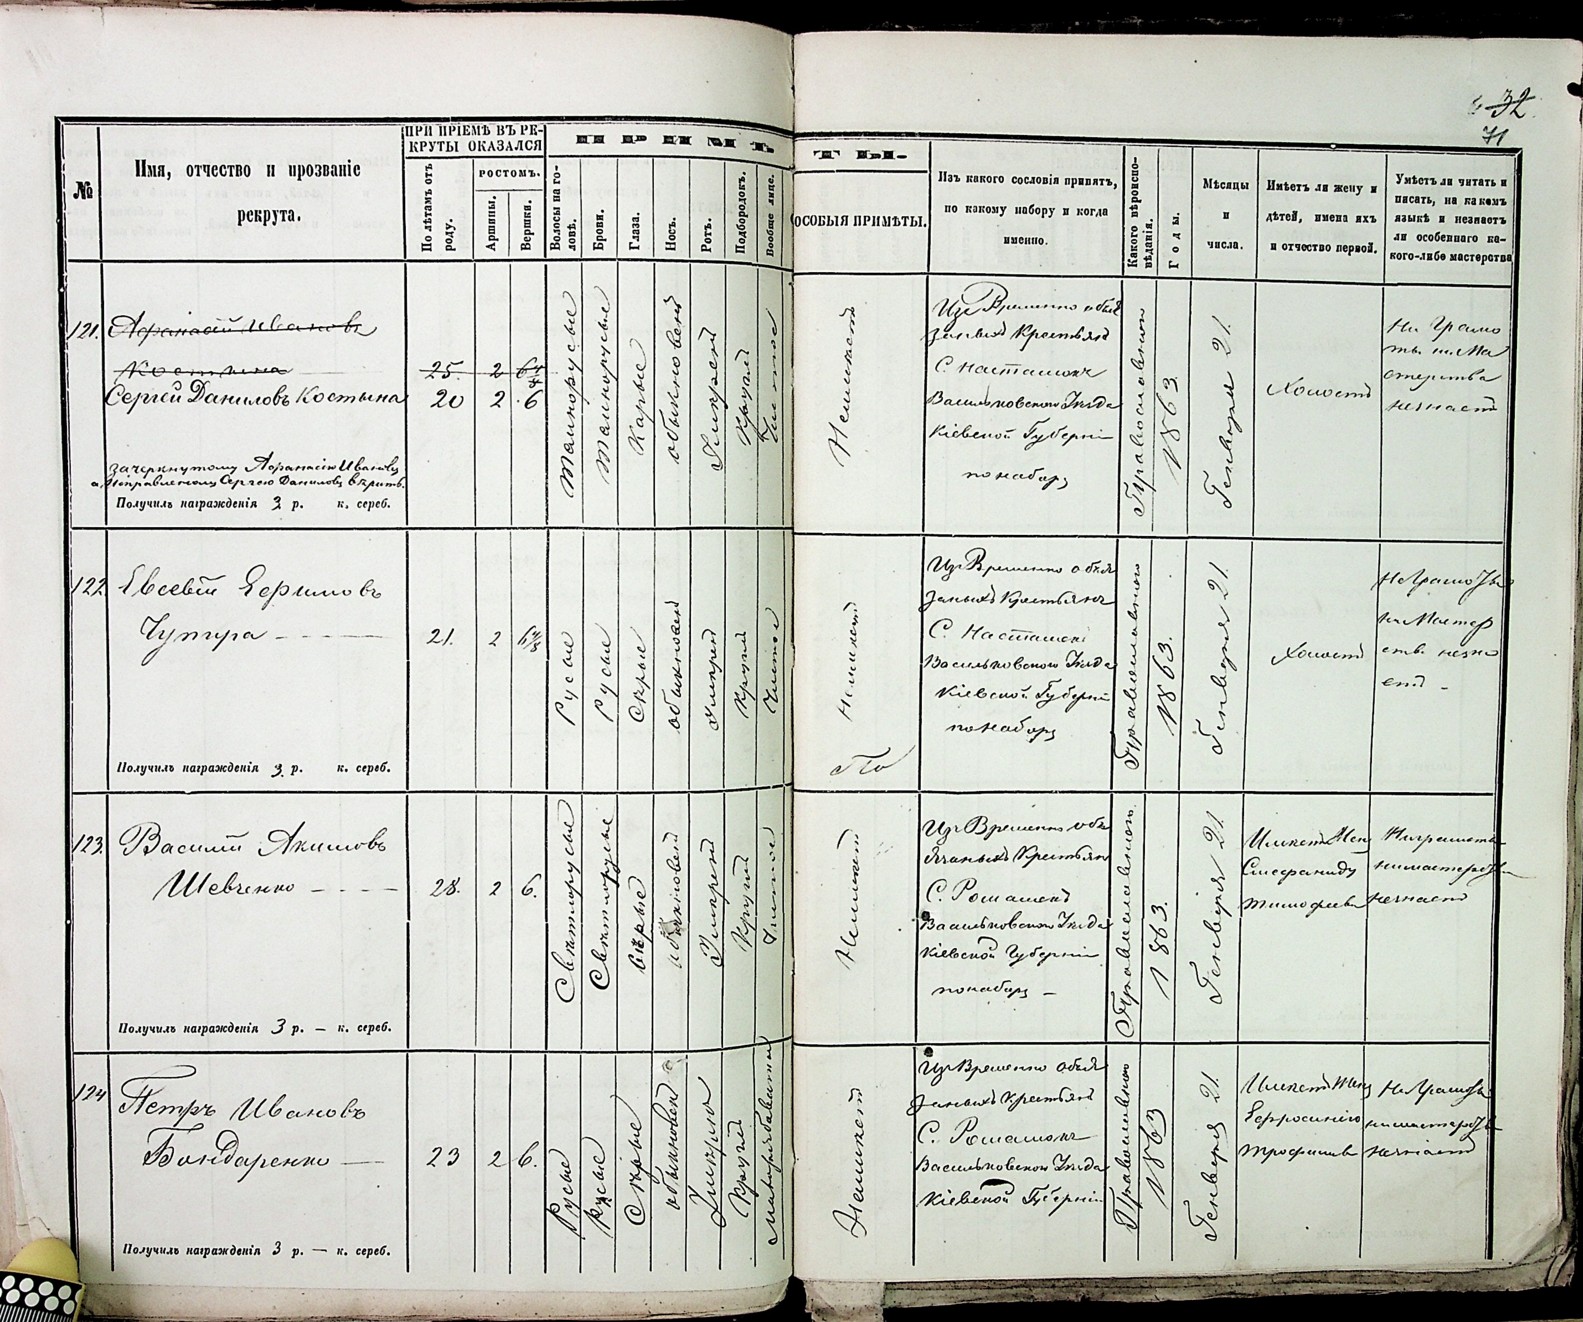 32
71
№
Имя, отчество и прозваніе
рекрута.
ПРИ ПРІЕМѢ ВЪ РЕ-
КРУТЫ ОКАЗАЛСЯ
По лѣтамъ отъ
роду.
РОСТОМЪ.
Аршины.
Вершки.
ПРИМѢТЫ.
Волосы на го-
ловѣ.
Брови.
Глаза.
Носъ.
Ротъ.
Подбородокъ.
Вообще лице.
ОСОБЫЯ ПРИМѢТЫ.
Изъ какого сословія принятъ,
по какому набору и когда
именно.
Какого вѣроиспо-
вѣданія.
Годы.
Мѣсяцы
и
числа.
Имѣетъ ли жену и
дѣтей, имена ихъ
и отчество первой.
Умѣетъ ли читать и
писать, на какомъ
языкѣ и незнаетъ
ли особеннаго ка-
кого-либо мастерства
121.
Афанасій Ивановъ
Костына
25. 2
Сергей Даниловъ Костына
20 2 6
зачеркнутому Афанасію Иванову
а исправленому Сергею Данилову вѣрить.
Получилъ награжденія 3 р. к. сереб.
Темнорусые
Темнорусые
Карые
обыкновен
Умерен
Круглый
Чистое
Неимеет
Изъ Временно обя
занныхъ Крестьянъ
С. Насташки
Васильковского Уезда
Кіевской Губерніи
по набору
Православного
1863
Генваря 21.
Холостъ
Ни Грамо
ты ни Ма
стерства
незнаетъ
122
Евсевій Ефимовъ
Чупыра
21. 2
Получилъ награжденія 3. р. к. сереб.
Русые
Русые
Серые
обыкновен
Умерен
Круглый
Чистое
Неимеет
По
Изъ Временно обя
занныхъ Крестьянъ
С. Насташки
Васильковского Уезда
Кіевской Губерніи
по набору
Православного
1863.
Генваря 21.
Холостъ
Ни Грамоты
ни Мастер
ства незна
етъ
123.
Василій Акимовъ
Шевченко
28. 2 6.
Получилъ награжденія 3 р. — к. сереб.
Светлорусые
Светлорусые
Серые
обыкновен
Умерен
Круглый
Чистое
Неимеет
Изъ Временно обя
занныхъ Крестьянъ
С. Ромашек
Васильковского Уезда
Кіевской Губерніи
по набору —
Православного
1863.
Генваря 21.
Имеетъ Жен
Стефаниду
Тимофееву
Ни грамоты
ни мастерства
незнаетъ
124
Петръ Ивановъ
Бондаренко
23 2 6.
Получилъ награжденія 3 р. — к. сереб.
Русые
Русые
Серые
обыкновен
Умерен
Круглый
Неимеет
Изъ Временно обя
занныхъ Крестьянъ
С. Ромашки
Васильковского Уезда
Кіевской Губерніи
Православного
1863
Генваря 21.
Имеетъ Жену
Ефросинію
Трофимову
Ни Грамоты
ни мастерства
незнаетъ